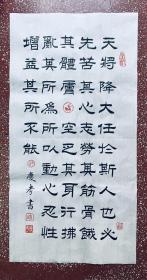 天將降大任於斯人也必
先苦其心志勞其筋骨餓
其體膚空乏其身行拂
亂其所為所以動心忍性
增益其所不能
慶 書